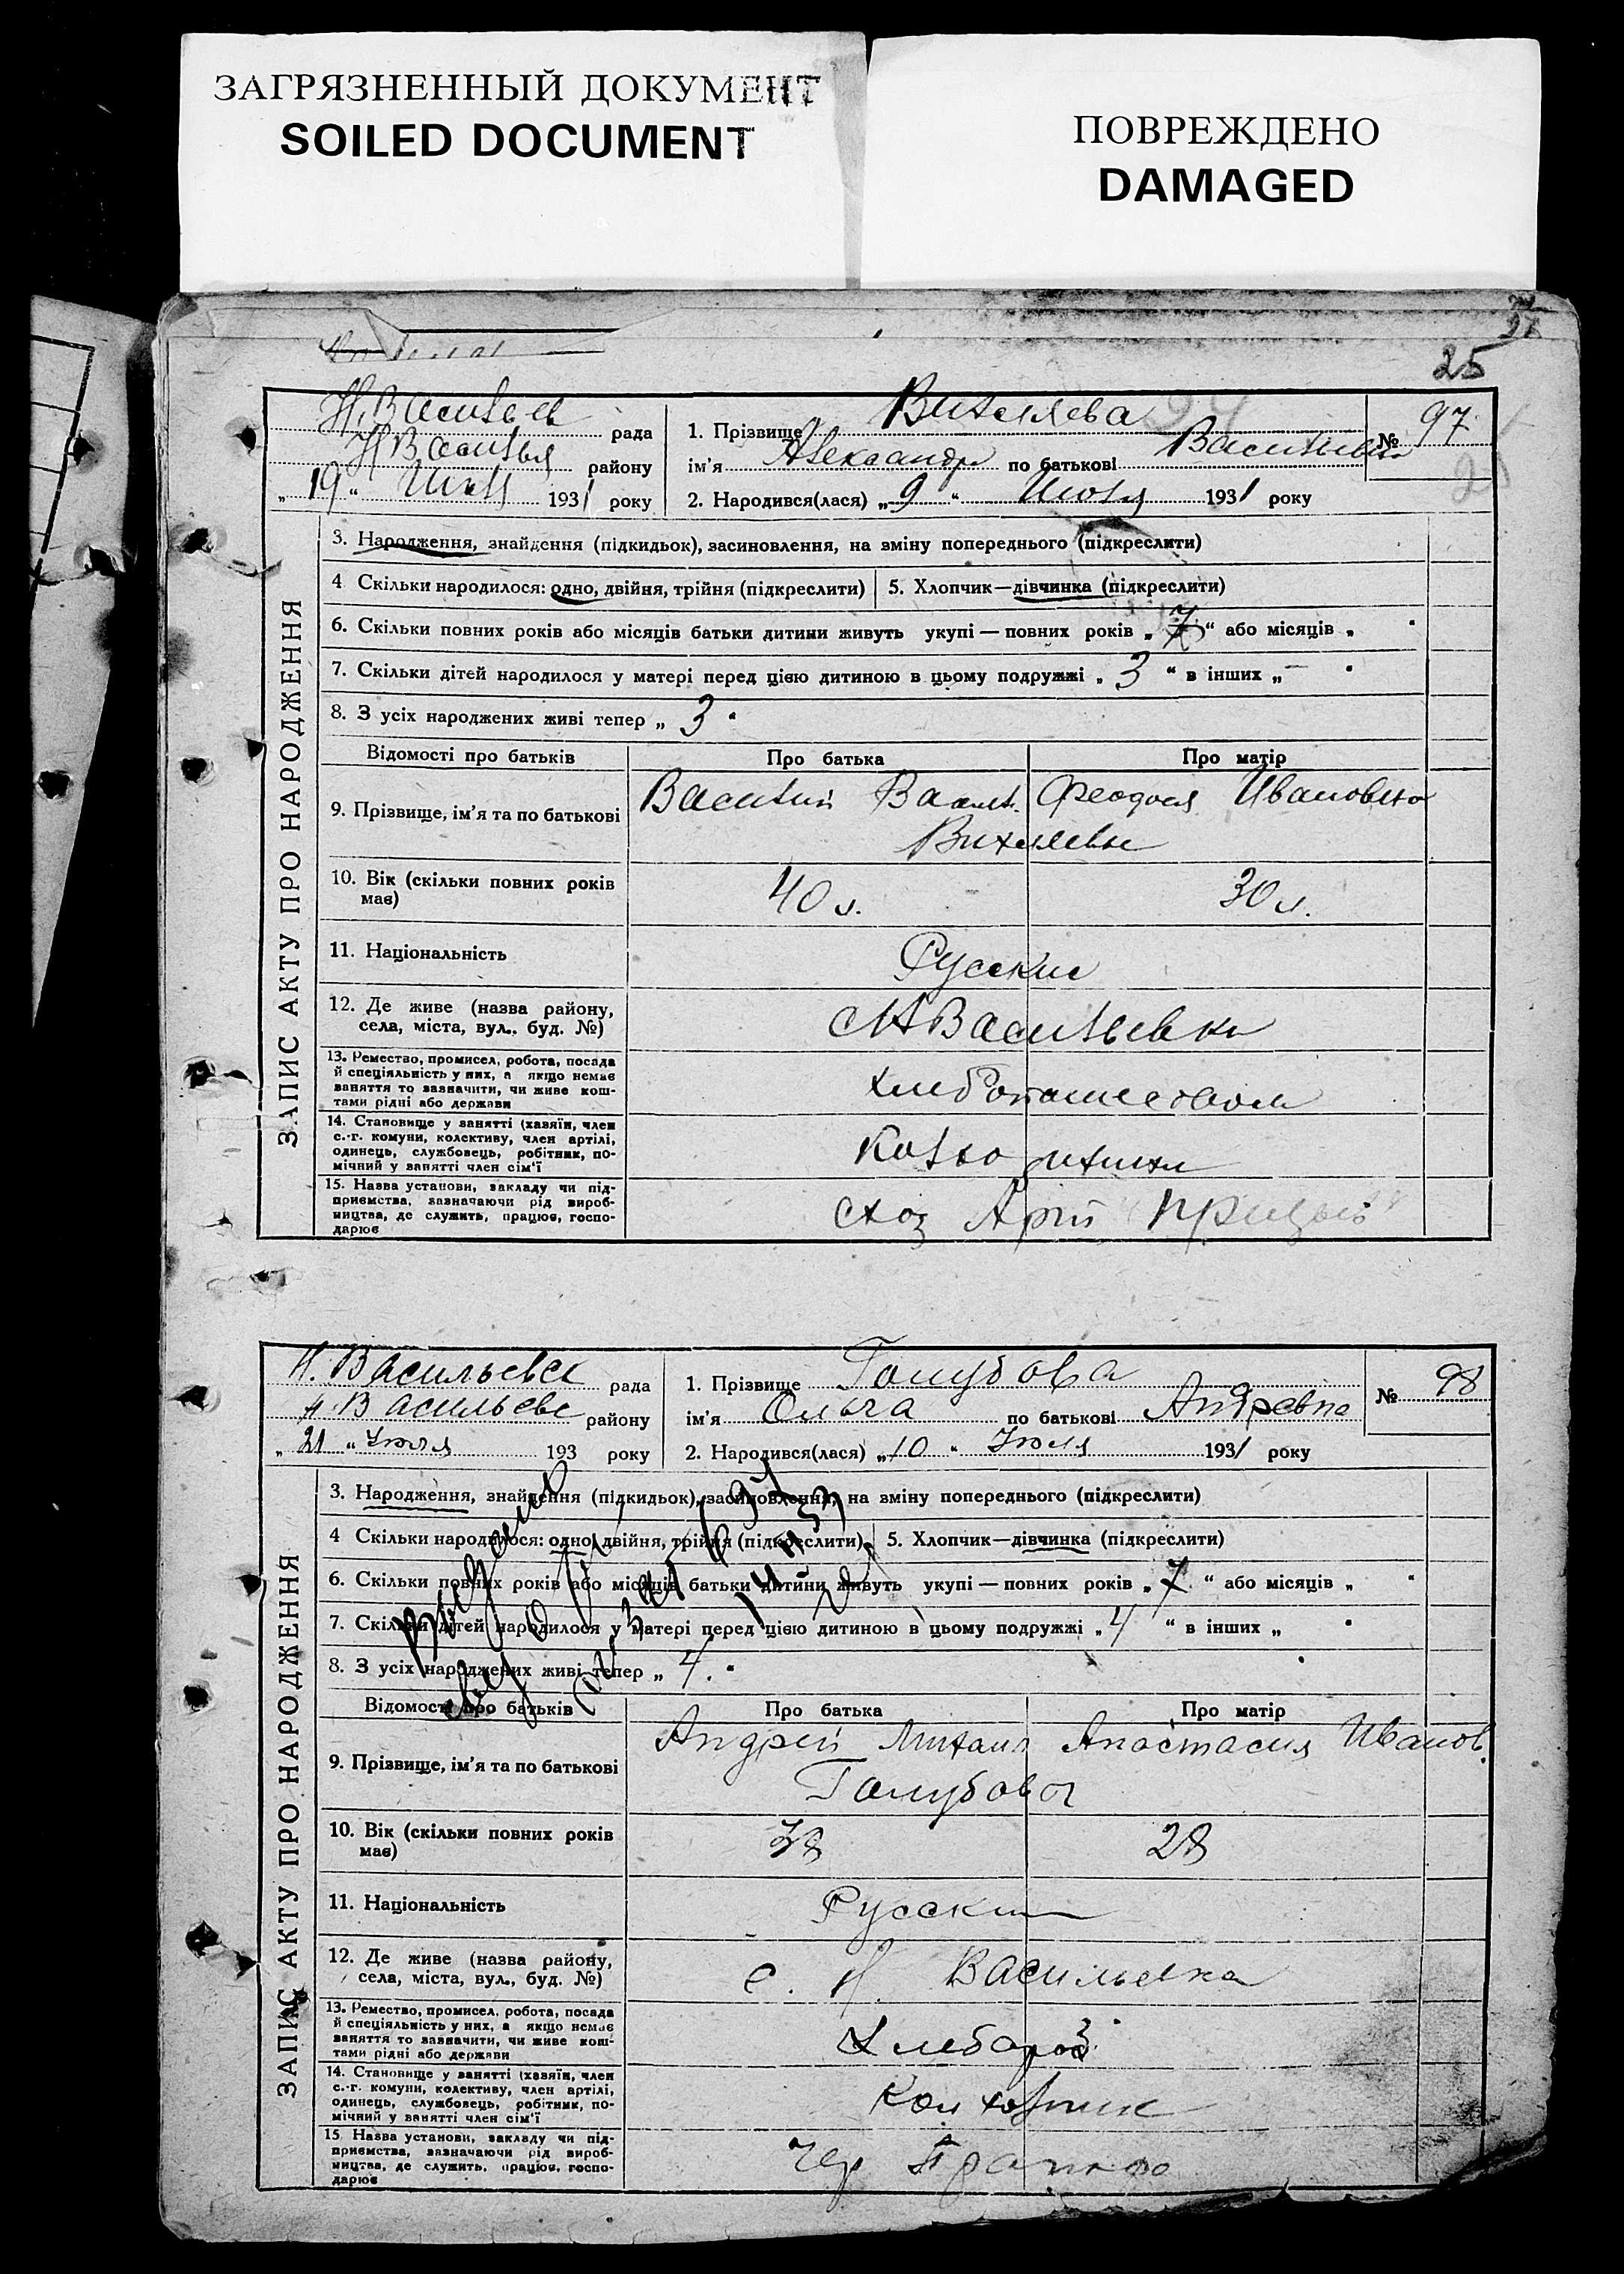 ЗАГРЯЗНЕННЫЙ ДОКУМЕНТ
SOILED DOCUMENT
ПОВРЕЖДЕНО
DAMAGED
25
ЗАПИС АКТУ ПРО НАРОДЖЕННЯ
Н.Васильев рада
Н Васильев району
„ 19 “ Июля 1931 року
1. Прізвище Вихляева
ім'я Александра по батькові Васильевна
№ 97
2. Народився(лася) „ 9 “ Июля 1931 року
3. Народження, знайдення (підкидьок), засиновлення, на зміну попереднього (підкреслити)
4 Скільки народилося: одно, двійня, трійня (підкреслити) 5. Хлопчик—дівчинка (підкреслити)
6. Скільки повних років або місяців батьки дитини живуть укупі — повних років „ 7 “ або місяців „ “
7. Скільки дітей народилося у матері перед цією дитиною в цьому подружжі „ 3 “ в інших „ — “
8. З усіх народжених живі тепер „ 3 “
Відомості про батьків Про батька Про матір
9. Прізвище, ім'я та по батькові Василий Василь. Феодосия Ивановна
Вихляевы
10. Вік (скільки повних років має) 40 л. 30 л.
11. Національність Русские
12. Де живе (назва району, села, міста, вул., буд. №) с Н Васильевка
13. Ремество, промисел, робота, посада й спеціяльність у них, а якщо немає заняття то зазначити, чи живе коштами рідні або держави
14. Становище у занятті (хазяїн, член с.-г. комуни, колективу, член артілі, одинець, службовець, робітник, помічний у занятті член сім'ї
15. Назва установи, закладу чи підприємства, зазначаючи рід виробництва, де служить, працює, господарює
ЗАПИС АКТУ ПРО НАРОДЖЕННЯ
Н. Васильевск рада
Н. Васильевс району
„ 21 “ Июля 193 року
1. Прізвище Голубова
ім'я Ольга по батькові Андревна
№ 98
2. Народився(лася) „ 10 “ Июля 1931 року
3. Народження, знайдення (підкидьок), засиновлення, на зміну попереднього (підкреслити)
4 Скільки народилося: одно, двійня, трійня (підкреслити) 5. Хлопчик—дівчинка (підкреслити)
6. Скільки повних років або місяців батьки дитини живуть укупі — повних років „ 7 “ або місяців „ “
7. Скільки дітей народилося у матері перед цією дитиною в цьому подружжі „ 4 “ в інших „ “
8. З усіх народжених живі тепер „ 4. “
Відомості про батьків Про батька Про матір
9. Прізвище, ім'я та по батькові Андрей Михаил Анастасия Иванов.
Голубовы
10. Вік (скільки повних років має) 38 28
11. Національність Русски
12. Де живе (назва району, села, міста, вул., буд. №) с. Н. Васильевка
13. Ремество, промисел, робота, посада й спеціяльність у них, а якщо немає заняття то зазначити, чи живе коштами рідні або держави Хлебороб
14. Становище у занятті (хазяїн, член с.-г. комуни, колективу, член артілі, одинець, службовець, робітник, помічний у занятті член сім'ї Колхозник
15. Назва установи, закладу чи підприємства, зазначаючи рід виробництва, де служить, працює, господарює